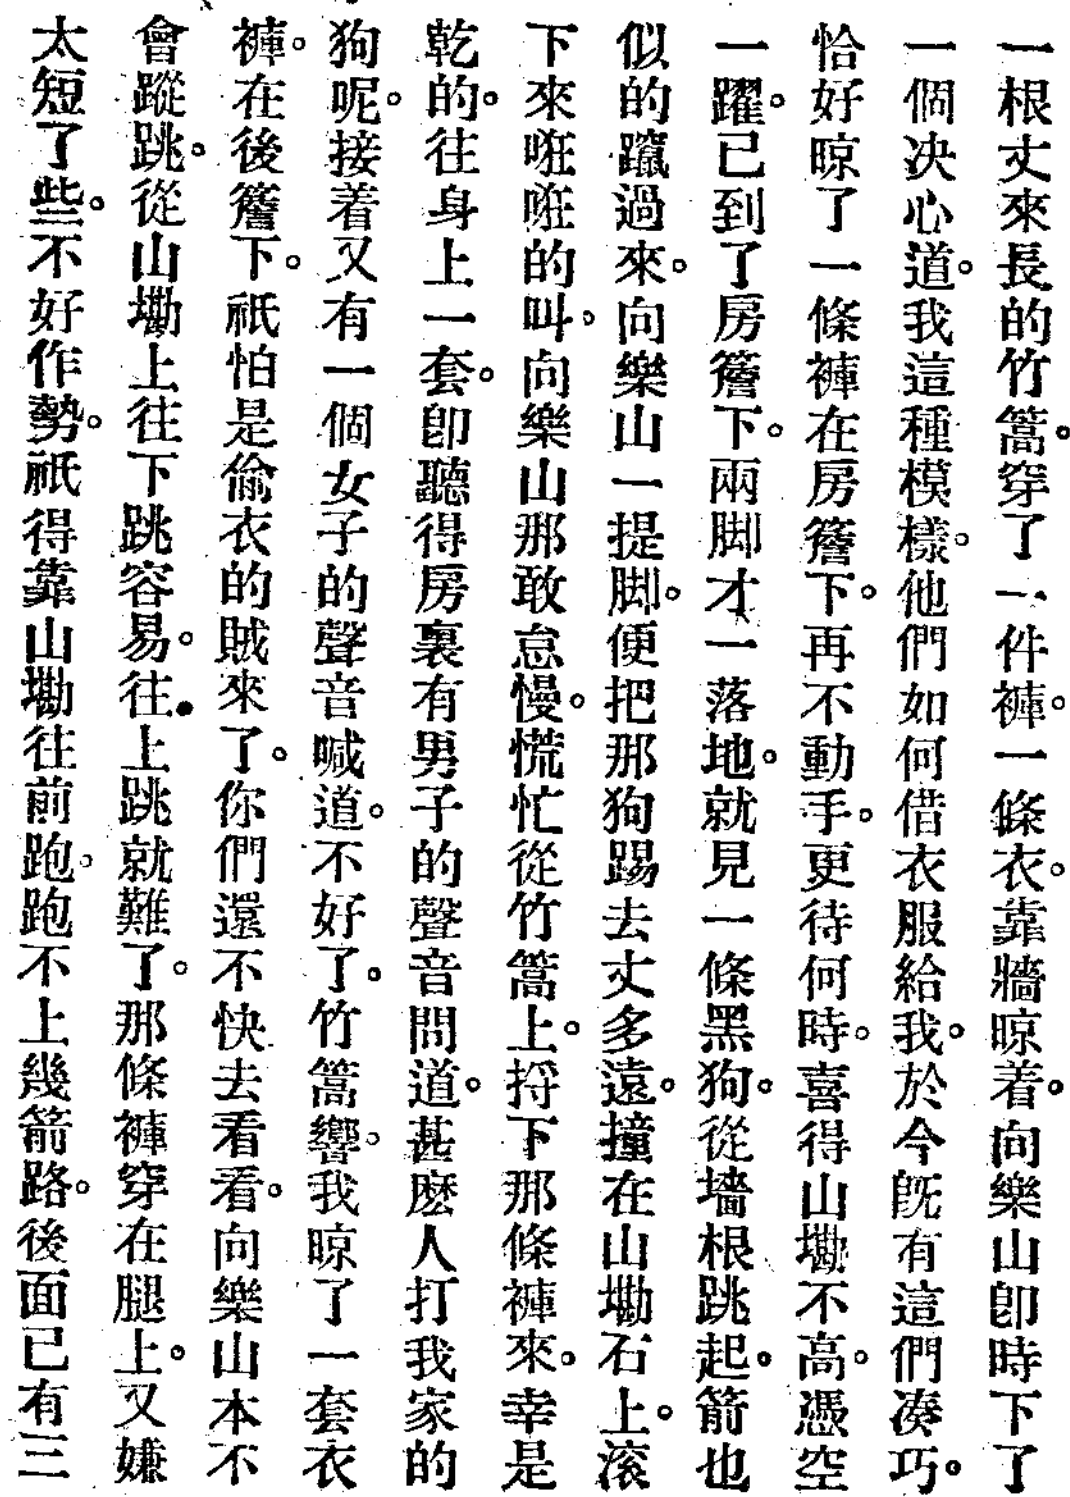 一根丈來長的竹篙。穿了一件褲。一條衣。靠牆晾着。向樂山卽時下了
一個決心道。我這種模樣。他們如何借衣服給我。於今旣有這們凑巧。
恰好晾了一條褲在房簷下。再不動手。更待何時。喜得山墈不高。憑空
一躍。已到了房簷下。兩脚才一落地。就見一條黑狗。從墻根跳起。箭也
似的躥過來。向樂山一提脚。便把那狗踢去丈多遠。撞在山墈石上。滚
下來哐哐的叫。向樂山那敢怠慢。慌忙從竹篙上。捋下那條褲來。幸是
乾的。往身上一套。卽聽得房裏有男子的聲音問道。甚麽人打我家的
狗呢。接着又有一個女子的聲音喊道。不好了。竹篙響。我晾了一套衣
褲。在後簷下。祇怕是偷衣的賊來了。你們還不快去看看。向樂山本不
會蹤跳。從山墈上往下跳容易。往上跳就難了。那條褲穿在腿上。又嫌
太短了些。不好作勢。祇得靠山墈往前跑。跑不上幾箭路。後面已有三